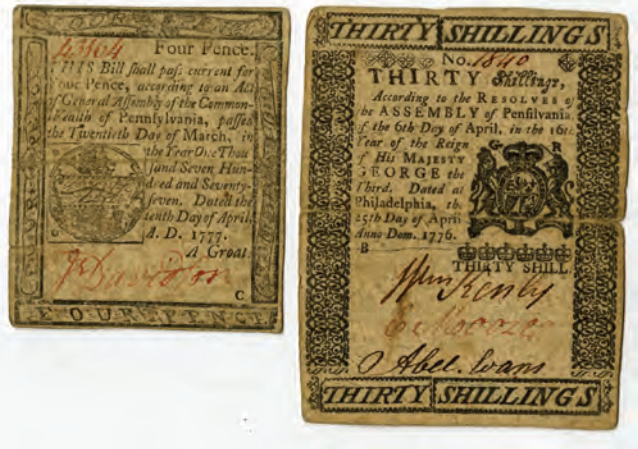 FOUR PENCE
4364 Four Pence.
THIS Bill shall pass current for
Four Pence, according to an Act
of General Assembly of the Common-
wealth of Pennsylvania, passed
the Twentieth Day of March, in
the Year One Thou
sand Seven Hun-
dred and Seventy-
seven. Dated the
tenth Day of April,
A. D. 1777.
A Groat.
C
FOUR PENCE
THIRTY SHILLINGS
No. 1840
THIRTY Shillings,
According to the RESOLVES of
the ASSEMBLY of Pensilvania
of the 6th Day of April, in the 16th
Year of the Reign
of His MAJESTY
GEORGE the
Third. Dated at
Philadelphia, th
25th Day of April
Anno Dom. 1776.
G R
B
THIRTY SHILL.
Abel. Evans
THIRTY SHILLINGS